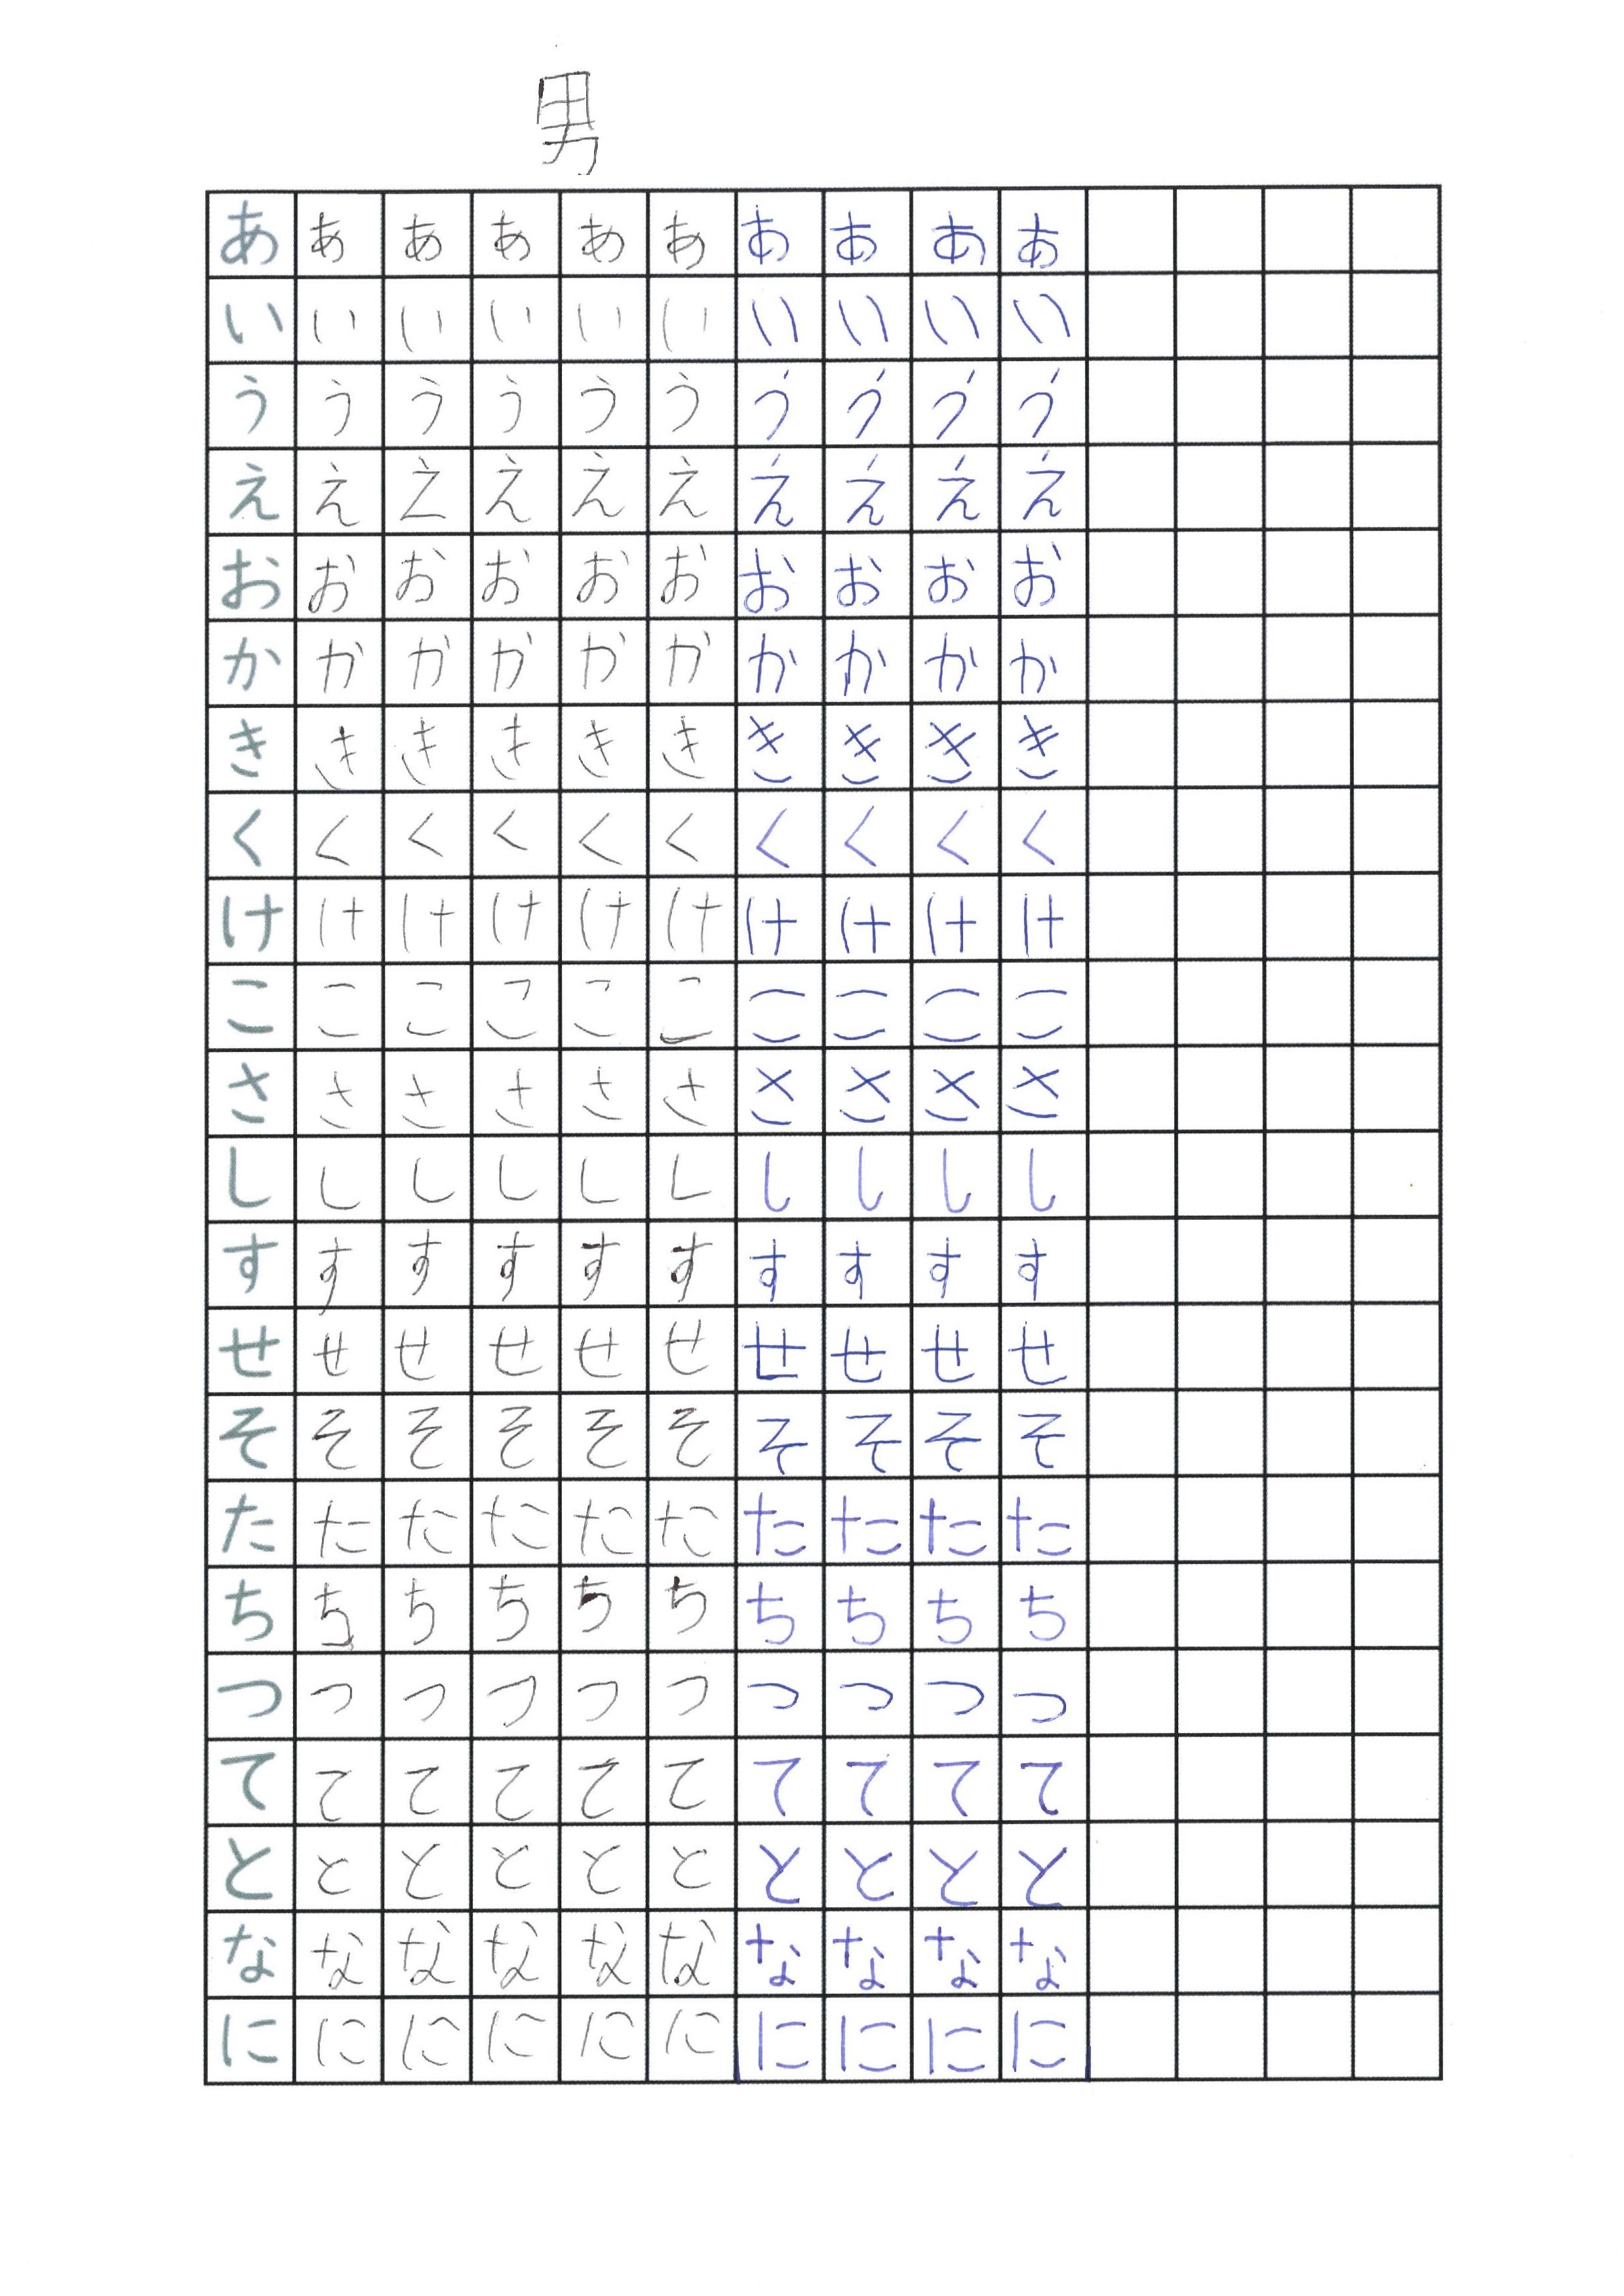 男
あ あ あ あ あ あ あ あ あ あ
い い い い い い い い い い
う う う う う う う う う う
え え え え え え え え え え
お お お お お お お お お お
か か か か か か か か か か
き き き き き き き き き き
く く く く く く く く く く
け け け け け け け け け け
こ こ こ こ こ こ こ こ こ こ
さ さ さ さ さ さ さ さ さ さ
し し し し し し し し し し
す す す す す す す す す す
せ せ せ せ せ せ せ せ せ せ
そ そ そ そ そ そ そ そ そ そ
た た た た た た た た た た
ち ち ち ち ち ち ち ち ち ち
つ つ つ つ つ つ つ つ つ つ
て て て て て て て て て て
と と と と と と と と と と
な な な な な な な な な な
に に に に に に に に に に